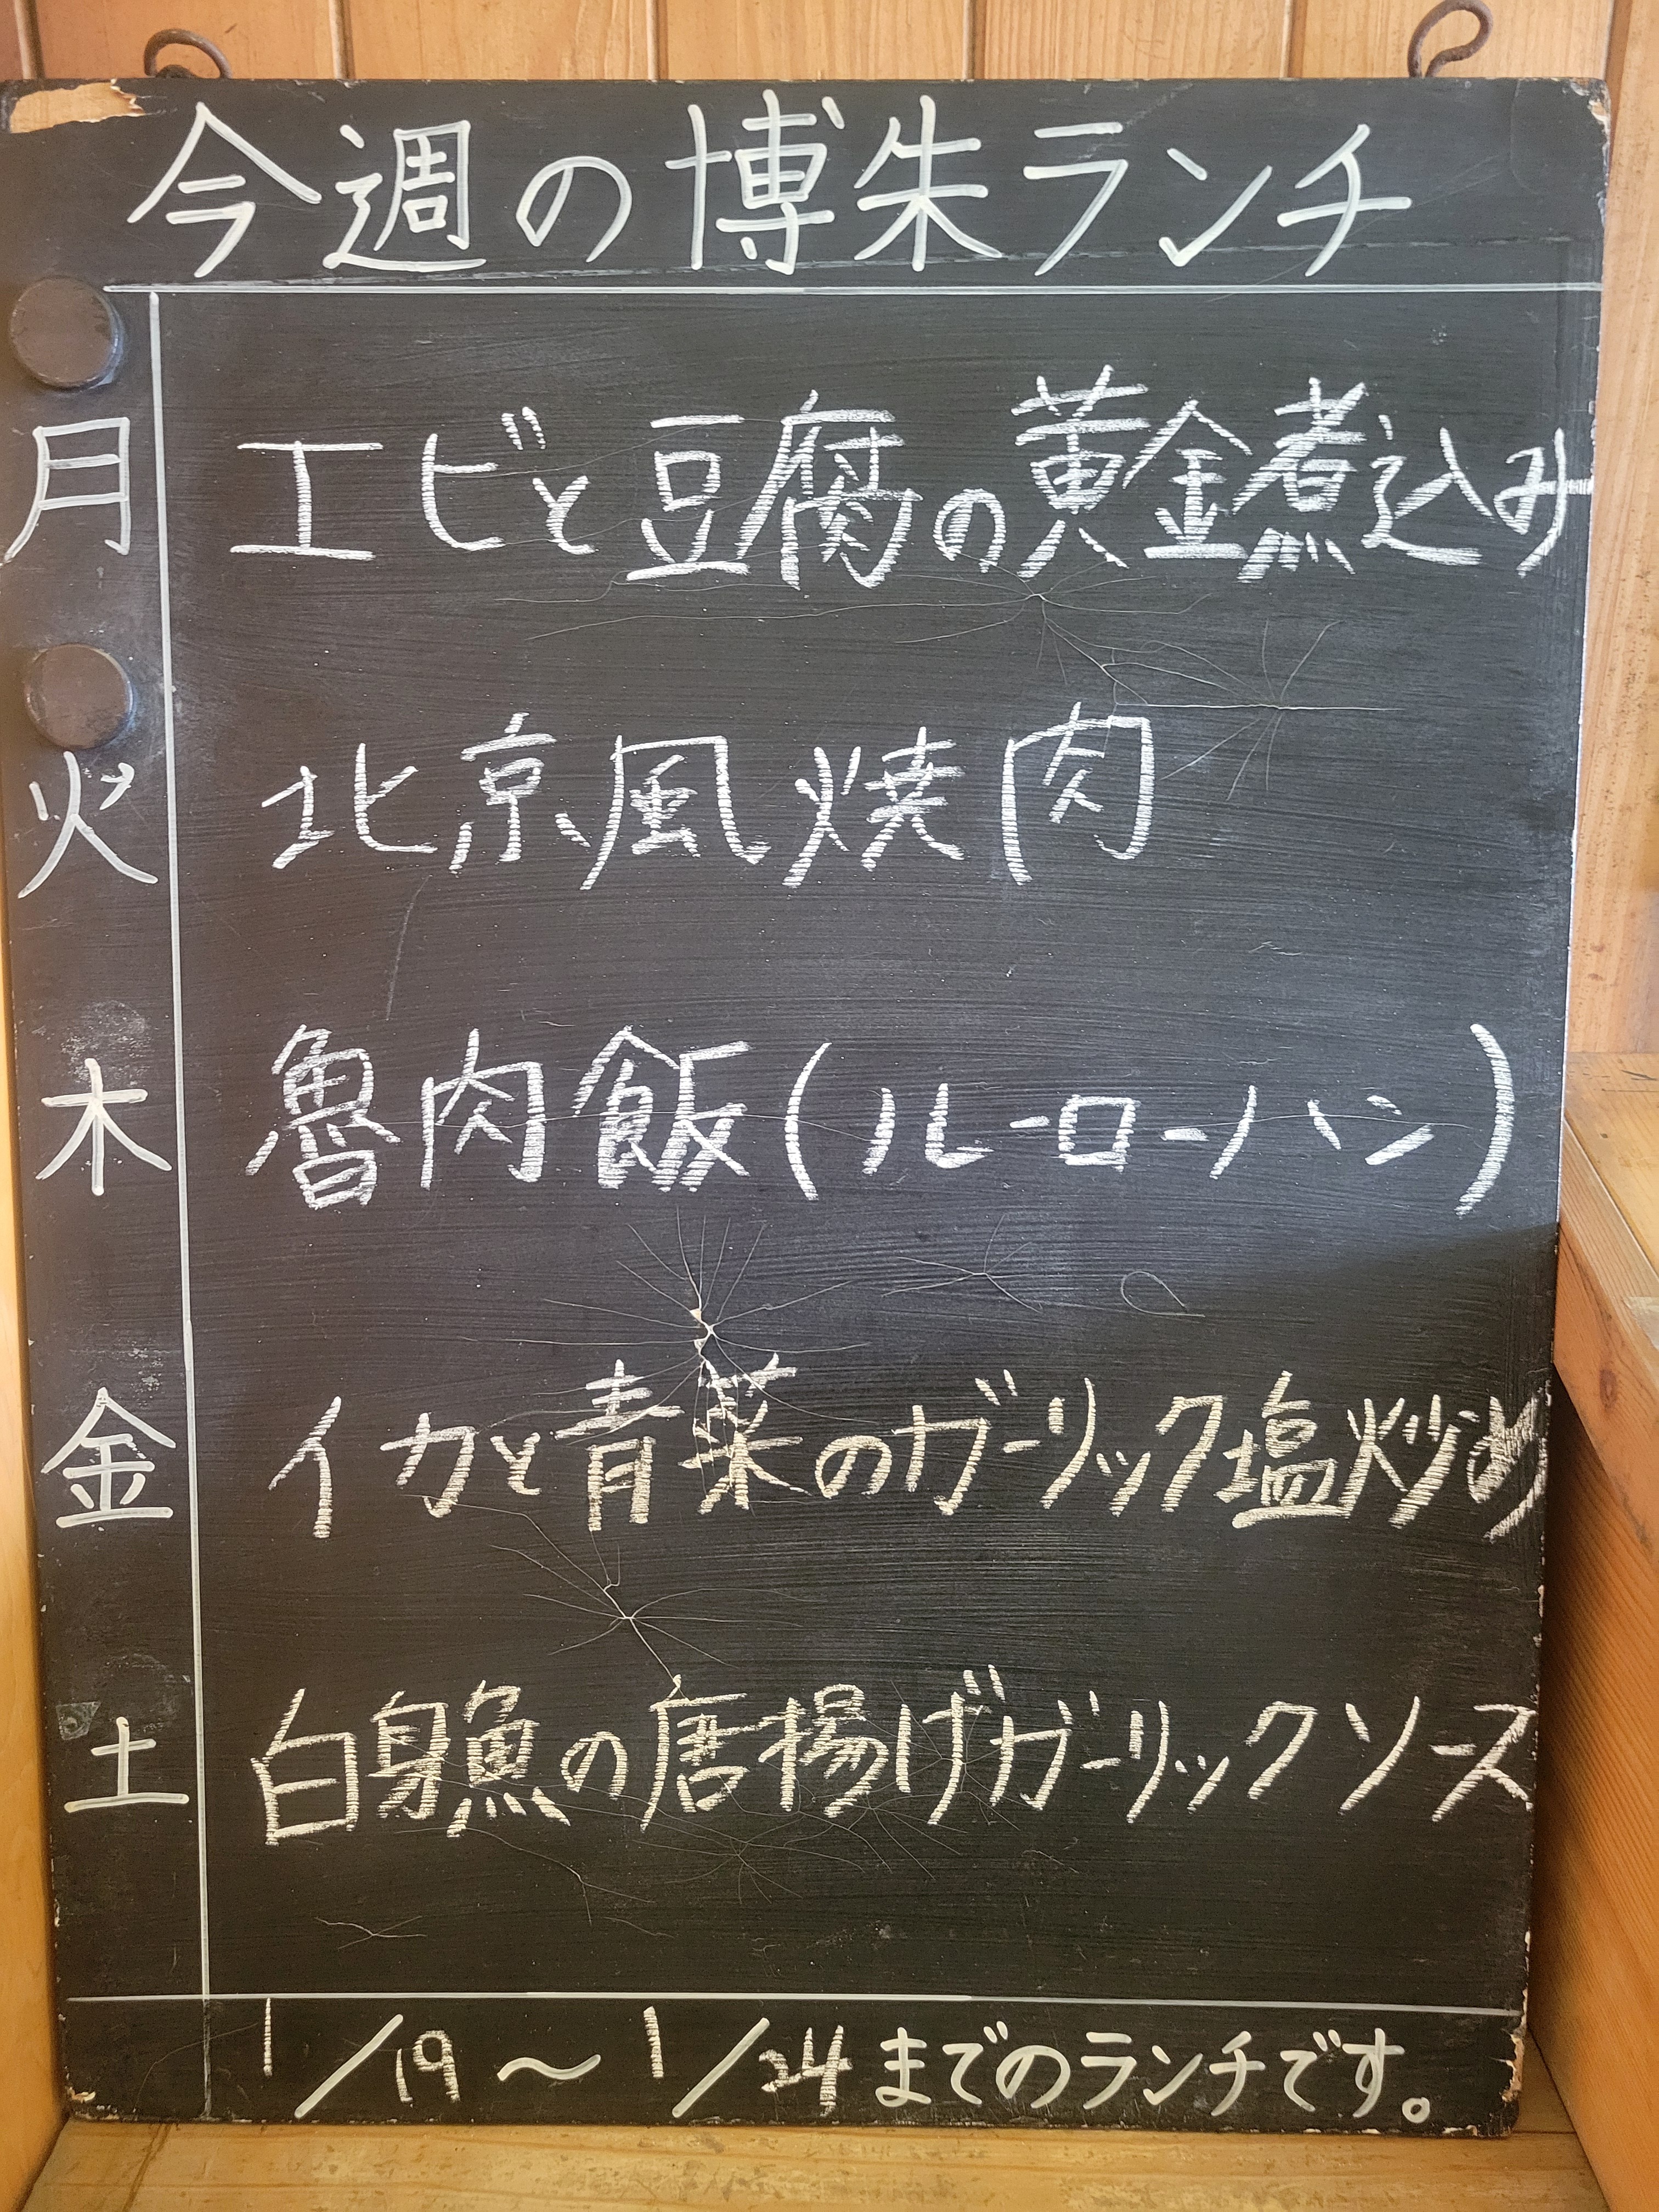 今週の博朱ランチ
月 エビと豆腐の黄金煮込み
火 北京風焼肉
木 魯肉飯(ルーローハン)
金 イカと青菜のガーリック塩炒め
土 白身魚の唐揚げガーリックソース
1/19～1/24までのランチです。